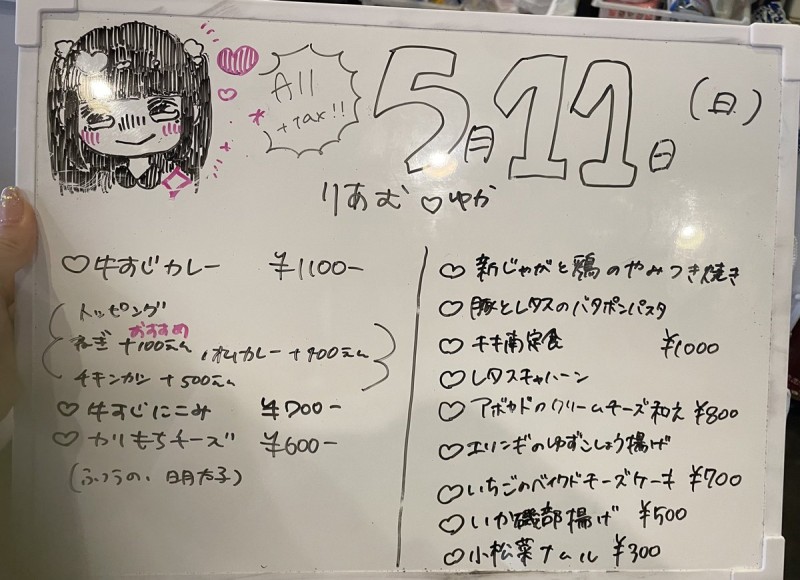 All
+ Tax!!
5月11日(日)
りあむ♡ゆか
♡牛すじカレー ¥1100-
トッピング
おすすめ
ねぎ+100えん,オムカレー+400えん
チキンカツ+500えん
♡牛すじにこみ ¥700-
♡カリもちチーズ ¥600-
(ふつうの、明太子)
♡新じゃがと鶏のやみつき焼き
♡豚とレタスのバタポンパスタ
♡チキ南定食 ¥1000
♡レタスチャーハン
♡アボカドのクリームチーズ和え ¥800
♡エリンギのゆずこしょう揚げ
♡いちごのベイクドチーズケーキ ¥700
♡いか磯部揚げ ¥500
♡小松菜ナムル ¥300